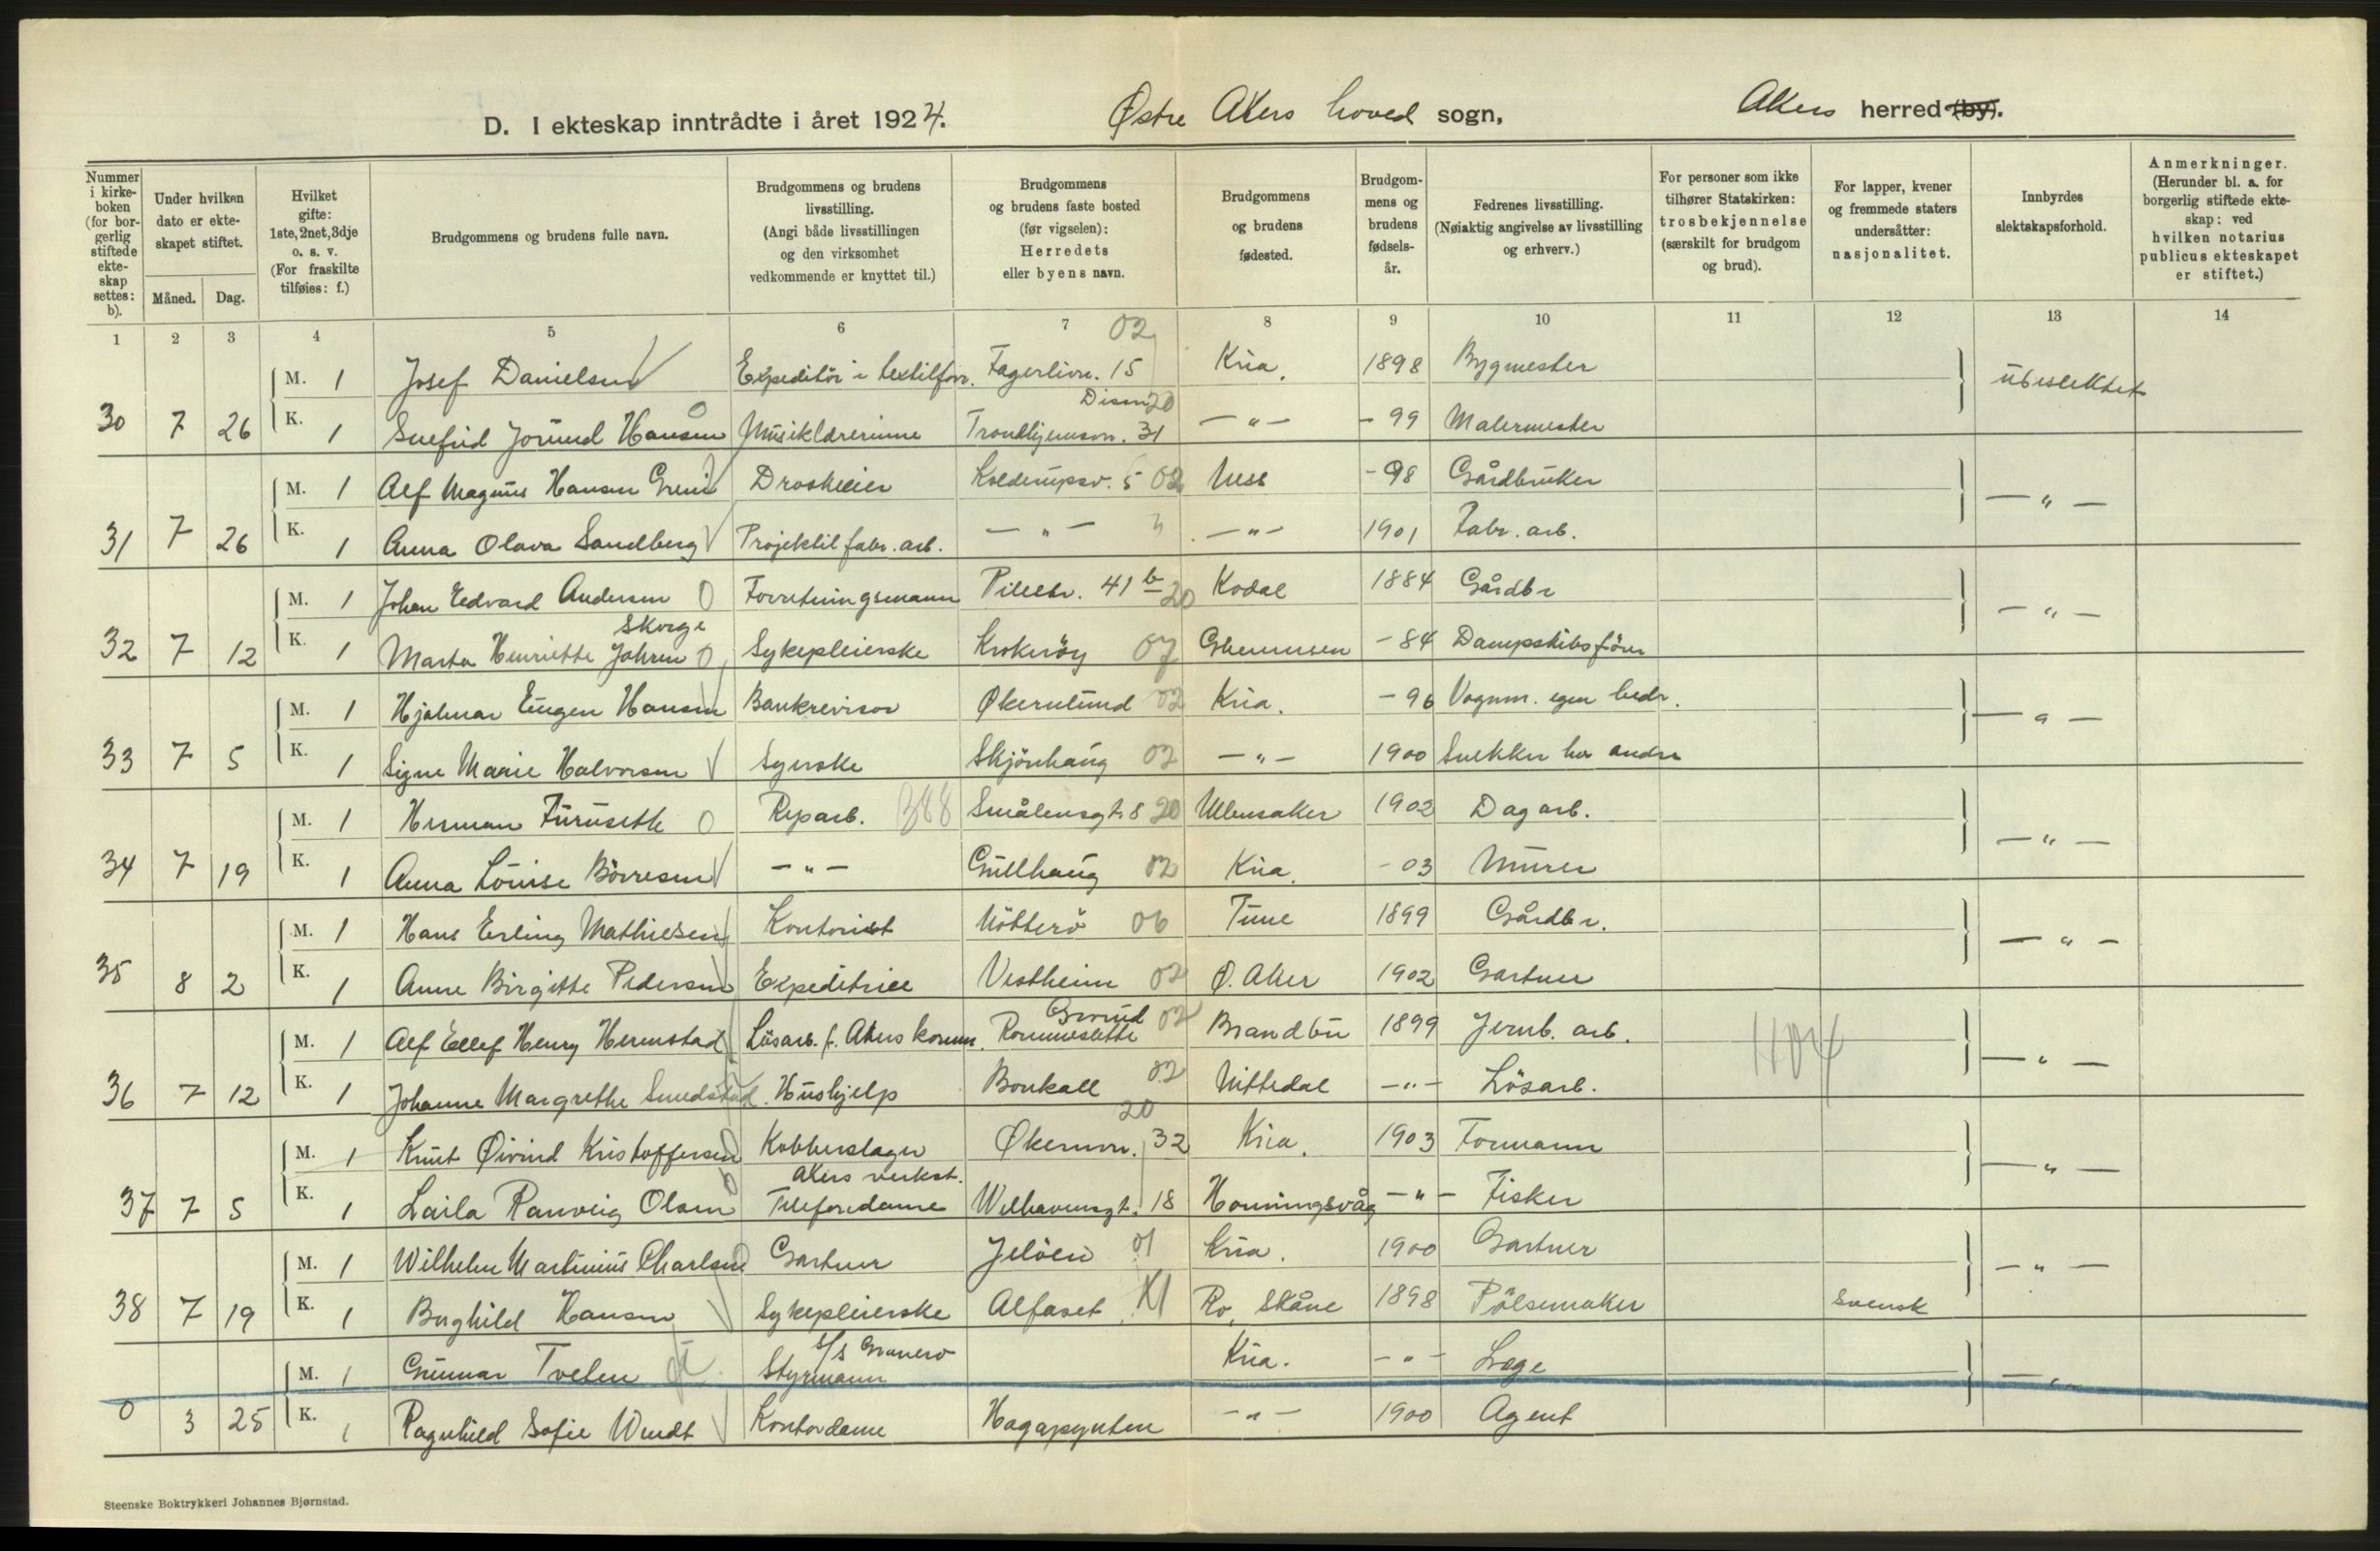 D. I ekteskap inntrådte i året 1924. Østre Akers hoved sogn, Akers herred (by).
Nummer i kirkeboken (for borgerlig stiftede ekteskap settes: b).
Under hvilken dato er ekteskapet stiftet.
Måned. Dag.
Hvilket gifte: 1ste, 2net, 3dje o. s. v. (For fraskilte tilføies: f.)
Brudgommens og brudens fulle navn.
Brudgommens og brudens livsstilling. (Angi både livsstillingen og den virksomhet vedkommende er knyttet til.)
Brudgommens og brudens faste bosted (før vigselen): Herredets eller byens navn.
Brudgommens og brudens fødested.
Brudgommens og brudens fødselsår.
Fedrenes livsstilling. (Nøiaktig angivelse av livsstilling og erhverv.)
For personer som ikke tilhører Statskirken: trosbekjennelse (særskilt for brudgom og brud).
For lapper, kvener og fremmede staters undersåtter: nasjonalitet.
Innbyrdes slektskapsforhold.
Anmerkninger. (Herunder bl. a. for borgerlig stiftede ekteskap: ved hvilken notarius publicus ekteskapet er stiftet.)
1 2 3 4 5 6 7 8 9 10 11 12 13 14
02
M. 1 Josef Danielsen Expeditör i textilforr. Fagerlivn. 15 Kria. 1898 Bygmester ubeslektet
Disen 20
30 7 26 K. 1 Snefrid Jorund Hansen Musiklærerinne Trondhjemsvn. 31 — " — - 99 Malermester
M. 1 Alf Magnus Hansen Drosjeeier Kolderupsv. 5 02 Ness - 98 Gårdbruker — " —
31 7 26 K. 1 Anna Olava Sandberg Projektil fabr. arb. — " — — " — 1901 Fabr. arb.
M. 1 Johan Edvard Andersen Forretningsmann Pilestr. 41 b 20 Kodal 1884 Gårdbr — " —
Skorge
32 7 12 K. 1 Marta Henriette Johren Sykepleierske Krokerøy 07 Glemmen - 84 Dampskibsfører
M. 1 Hjalmar Eugen Hansen Bankrevisor Økernlund 02 Kria. - 96 Vognm. egen bedr. — " —
33 7 5 K. 1 Signe Marie Halvorsen Syerske Skjönhaug 02 — " — 1900 Snekker hos andre
M. 1 Herman Furuseth Reparb. 388 Smålensgt. 8 20 Ullensaker 1902 Dagarb. — " —
34 7 19 K. 1 Anna Louise Börresen — " — Gullhaug 02 Kria. - 03 Murer
M. 1 Hans Erling Mathiesen Kontorist Nötterö 06 Tune 1899 Gårdbr. — " —
35 8 2 K. 1 Anne Birgitte Pedersen Expeditrice Vestheim 02 Ø. Aker 1902 Gartner
Grorud 02
M. 1 Alf Ellef Henry Hermstad Lösarb. f. Akers komm. Rommesletta Brandbu 1899 Jernb. arb. — " —
36 7 12 K. 1 Johanne Margrethe Smedstad Hushjelp Bonkall 02 Nittedal — " — Lösarb.
20
M. 1 Knut Øivind Kristoffersen Kobberslager Økernvn. 32 Kria. 1903 Formann — " —
Akers verkst.
37 7 5 K. 1 Laila Ranveig Olsen Telefondame Welhavensgt. 18 Honningsvåg — " — Fisker
M. 1 Wilhelm Martinius Charlsen Gartner Jelöen 01 Kria. 1900 Gartner — " —
38 7 19 K. 1 Borghild Hansen Sykepleierske Alfaset Ro, Skåne 1898 Pölsemaker Svensk
S/S Granero
M. 1 Gunnar Tveten Styrmann Kria. — " — Læge — " —
0 3 25 K. 1 Ragnhild Sofie Wendt Kontordame Hagapynten — " — 1900 Agent
Steenske Boktrykkeri Johannes Bjørnstad.